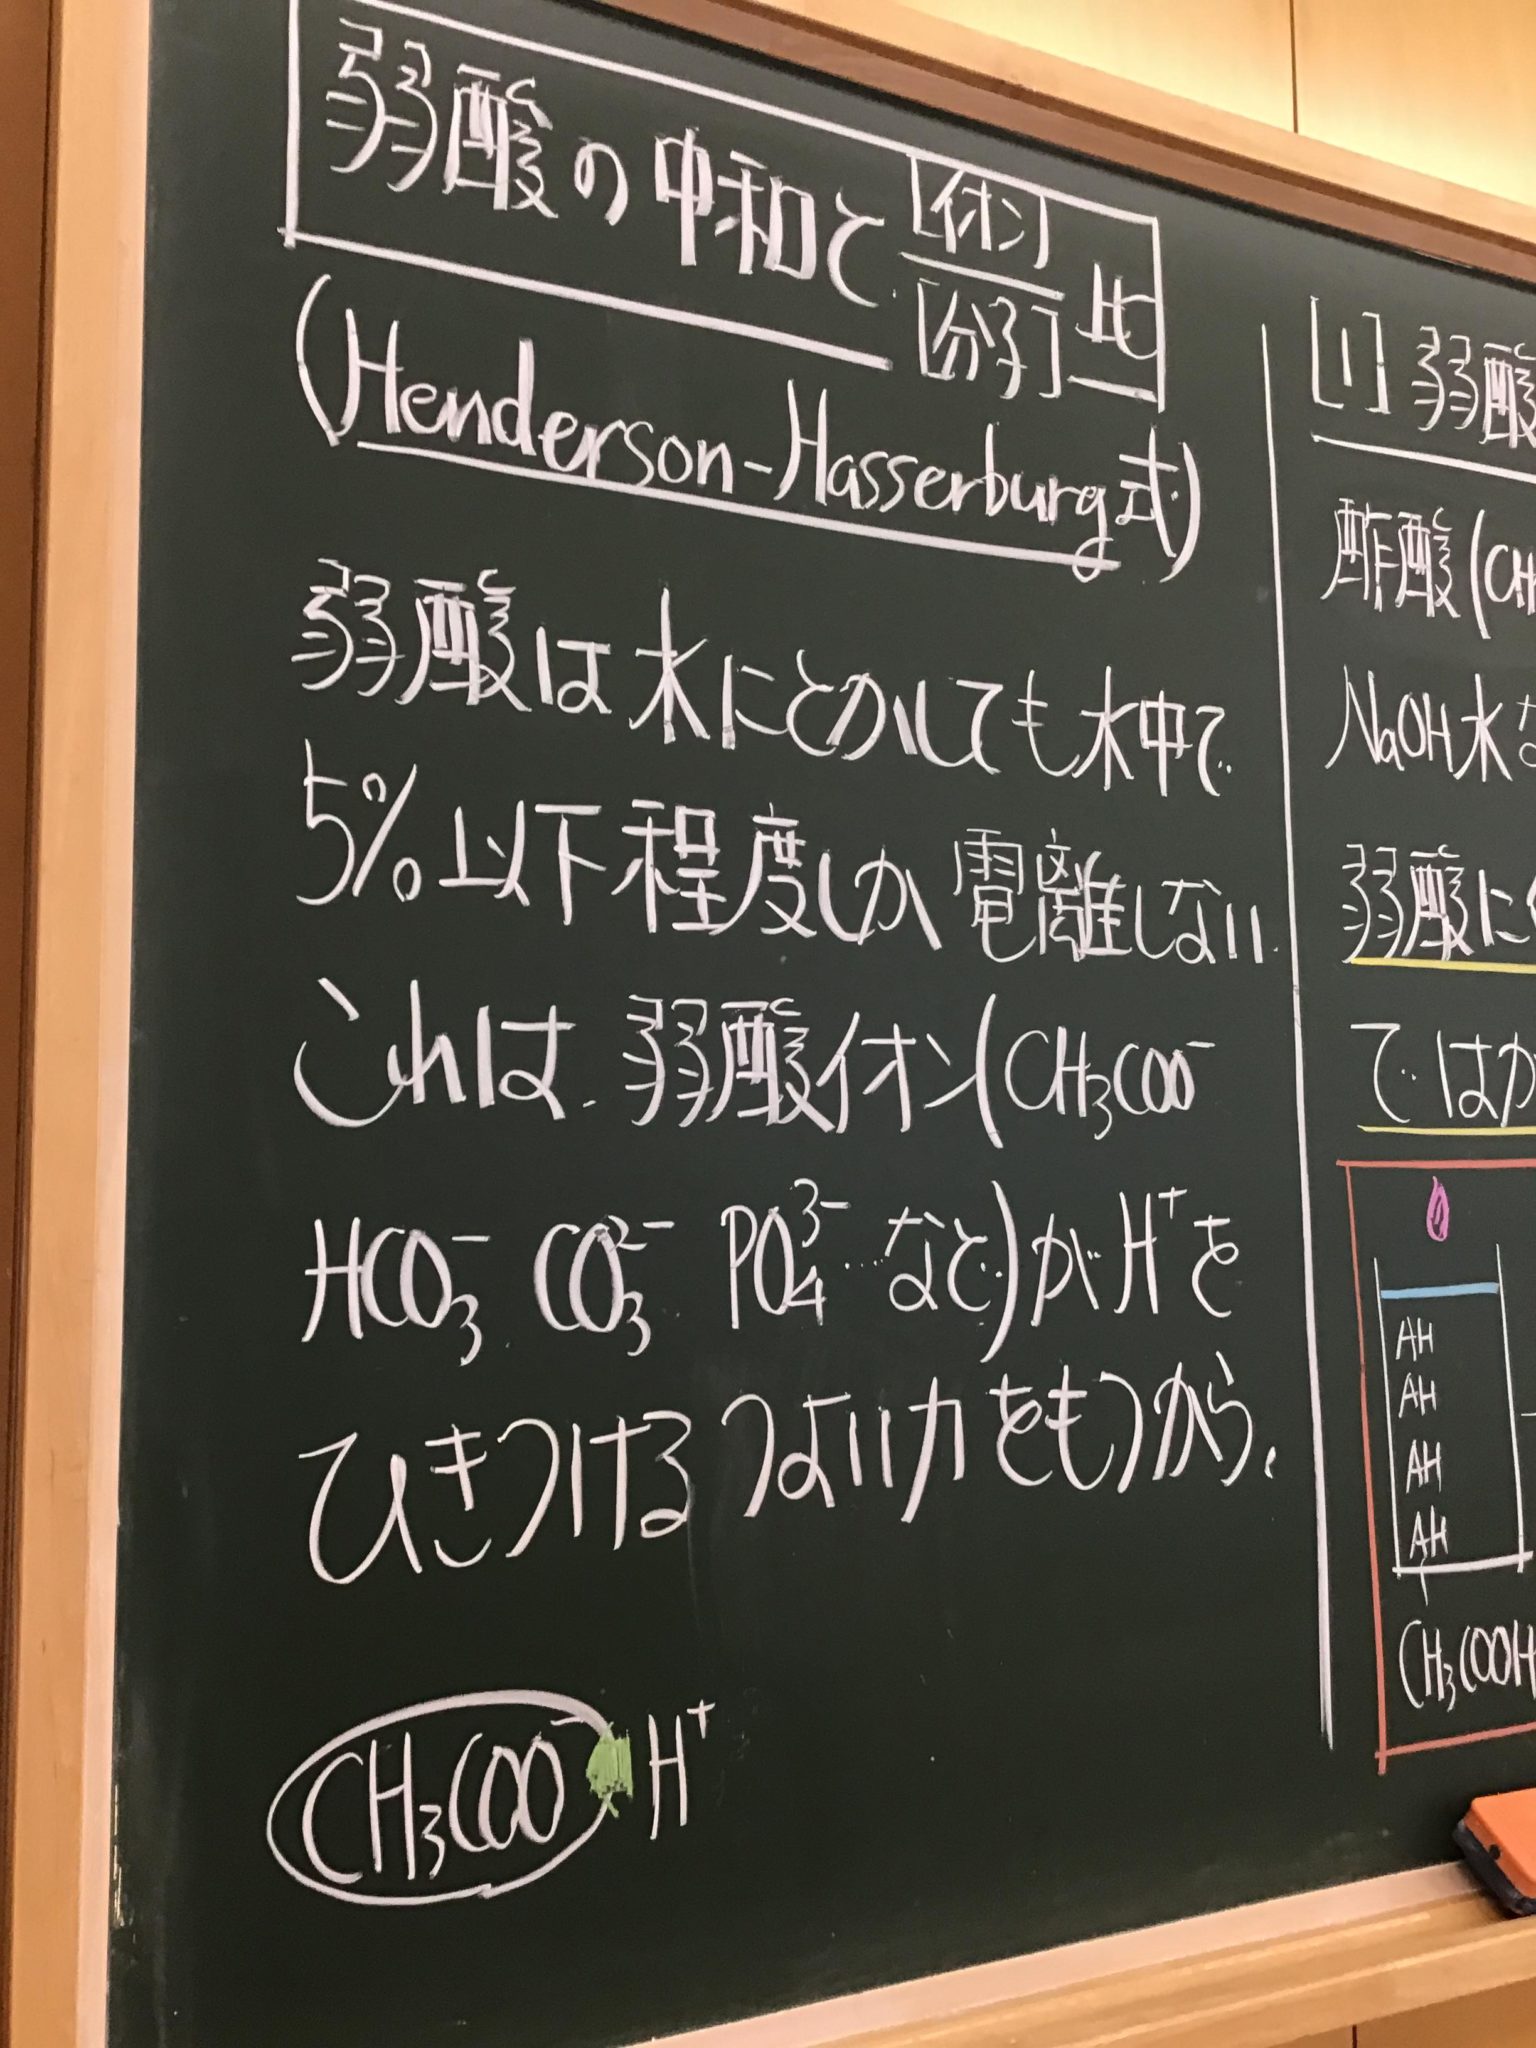 弱酸の中和と[イオン]/[分子]比
(Henderson-Hasserburg式)
弱酸は水にとかしても水中で
5%以下程度しか電離しない
これは弱酸イオン(CH₃COO⁻
HCO₃⁻ CO₃²⁻ PO₄³⁻…など)がH⁺を
ひきつけるつよい力をもつから.
CH₃COO⁻ H⁺
[1] 弱酸
酢酸(CH
NaOH水
弱酸に
ではか
AH
AH
AH
AH
CH₃COOH